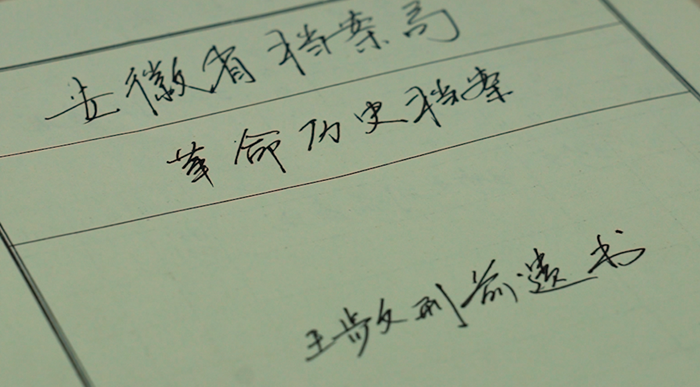 安徽省档案局
革命历史档案
王步文刑前遗书